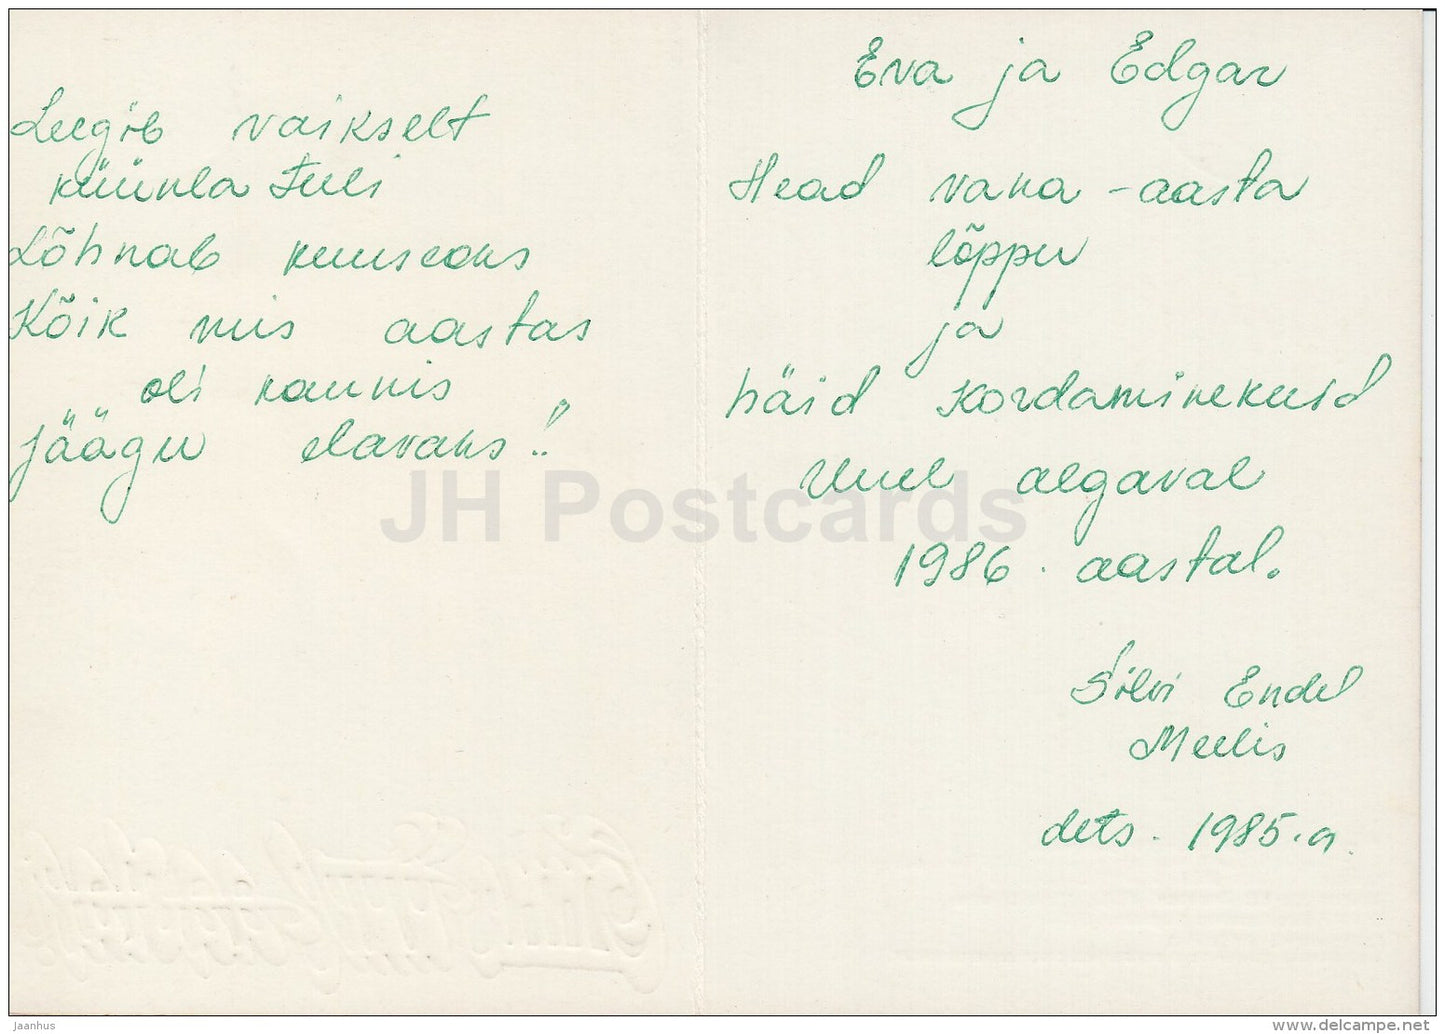 Leegib vaikselt
küünla tuli
Lõhnab kuuseoks
Kõik mis aastas
oli kaunis
jäägu elavaks!
Eva ja Edgar
Head vana-aasta
lõppu
ja
häid kordaminekuid
Uuel algaval
1986. aastal.
Silvi Endel
Meelis
dets. 1985.a.
JH Postcards
jaanhus
www.delcampe.net